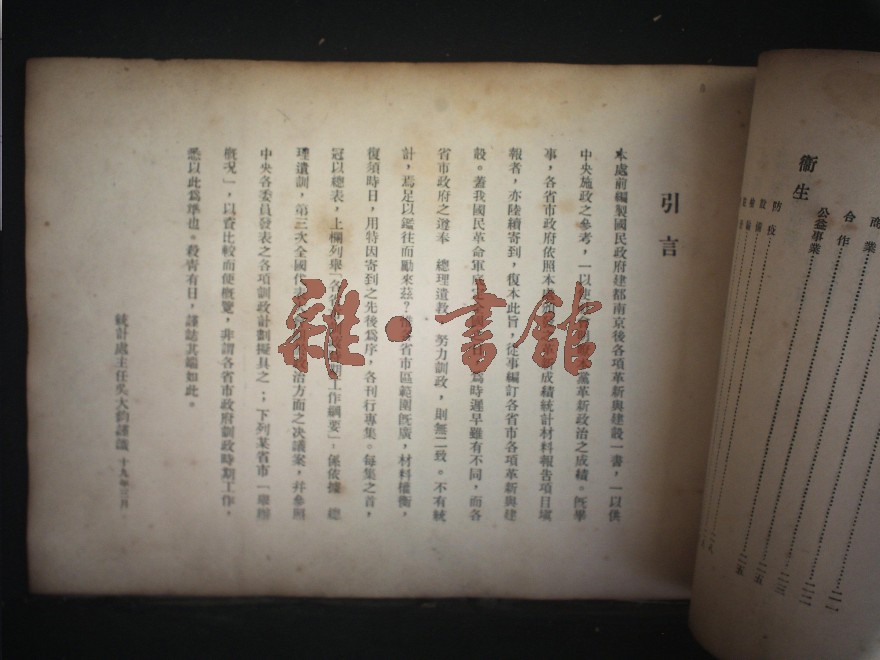 衞生
商業
合作
公益事業……二二
防疫……二三
設備……二五
引言
本處前編製國民政府建都南京後各項革新與建設一書，一以供
中央施政之參考，一以 黨革新政治之成績。旣畢
事，各省市政府依照本處 成績統計材料報告項目填
報者，亦陸續寄到，復本此旨，從事編訂各省市各項革新與建
設。蓋我國民革命軍底 為時遲早雖有不同，而各
省市政府之遵奉　總理遺敎，努力訓政，則無二致。不有統
計，焉足以鑑往而勵來茲？ 省市區範圍旣廣，材料權衡，
復須時日，用特因寄到之先後爲序，各刊行專集。每集之首，
冠以總表，上欄列舉「各省 工作綱要」，係依據　總
理遺訓，第三次全國代 政治方面之决議案，幷參照
中央各委員發表之各項訓政計劃擬具之；下列某省市「舉辦
概况」，以省比較而便概覽，非謂各省市政府訓政時期工作，
悉以此爲準也。殺靑有日，謹誌其端如此。
統計處主任吳大鈞謹識　十九年三月。
雜·書館